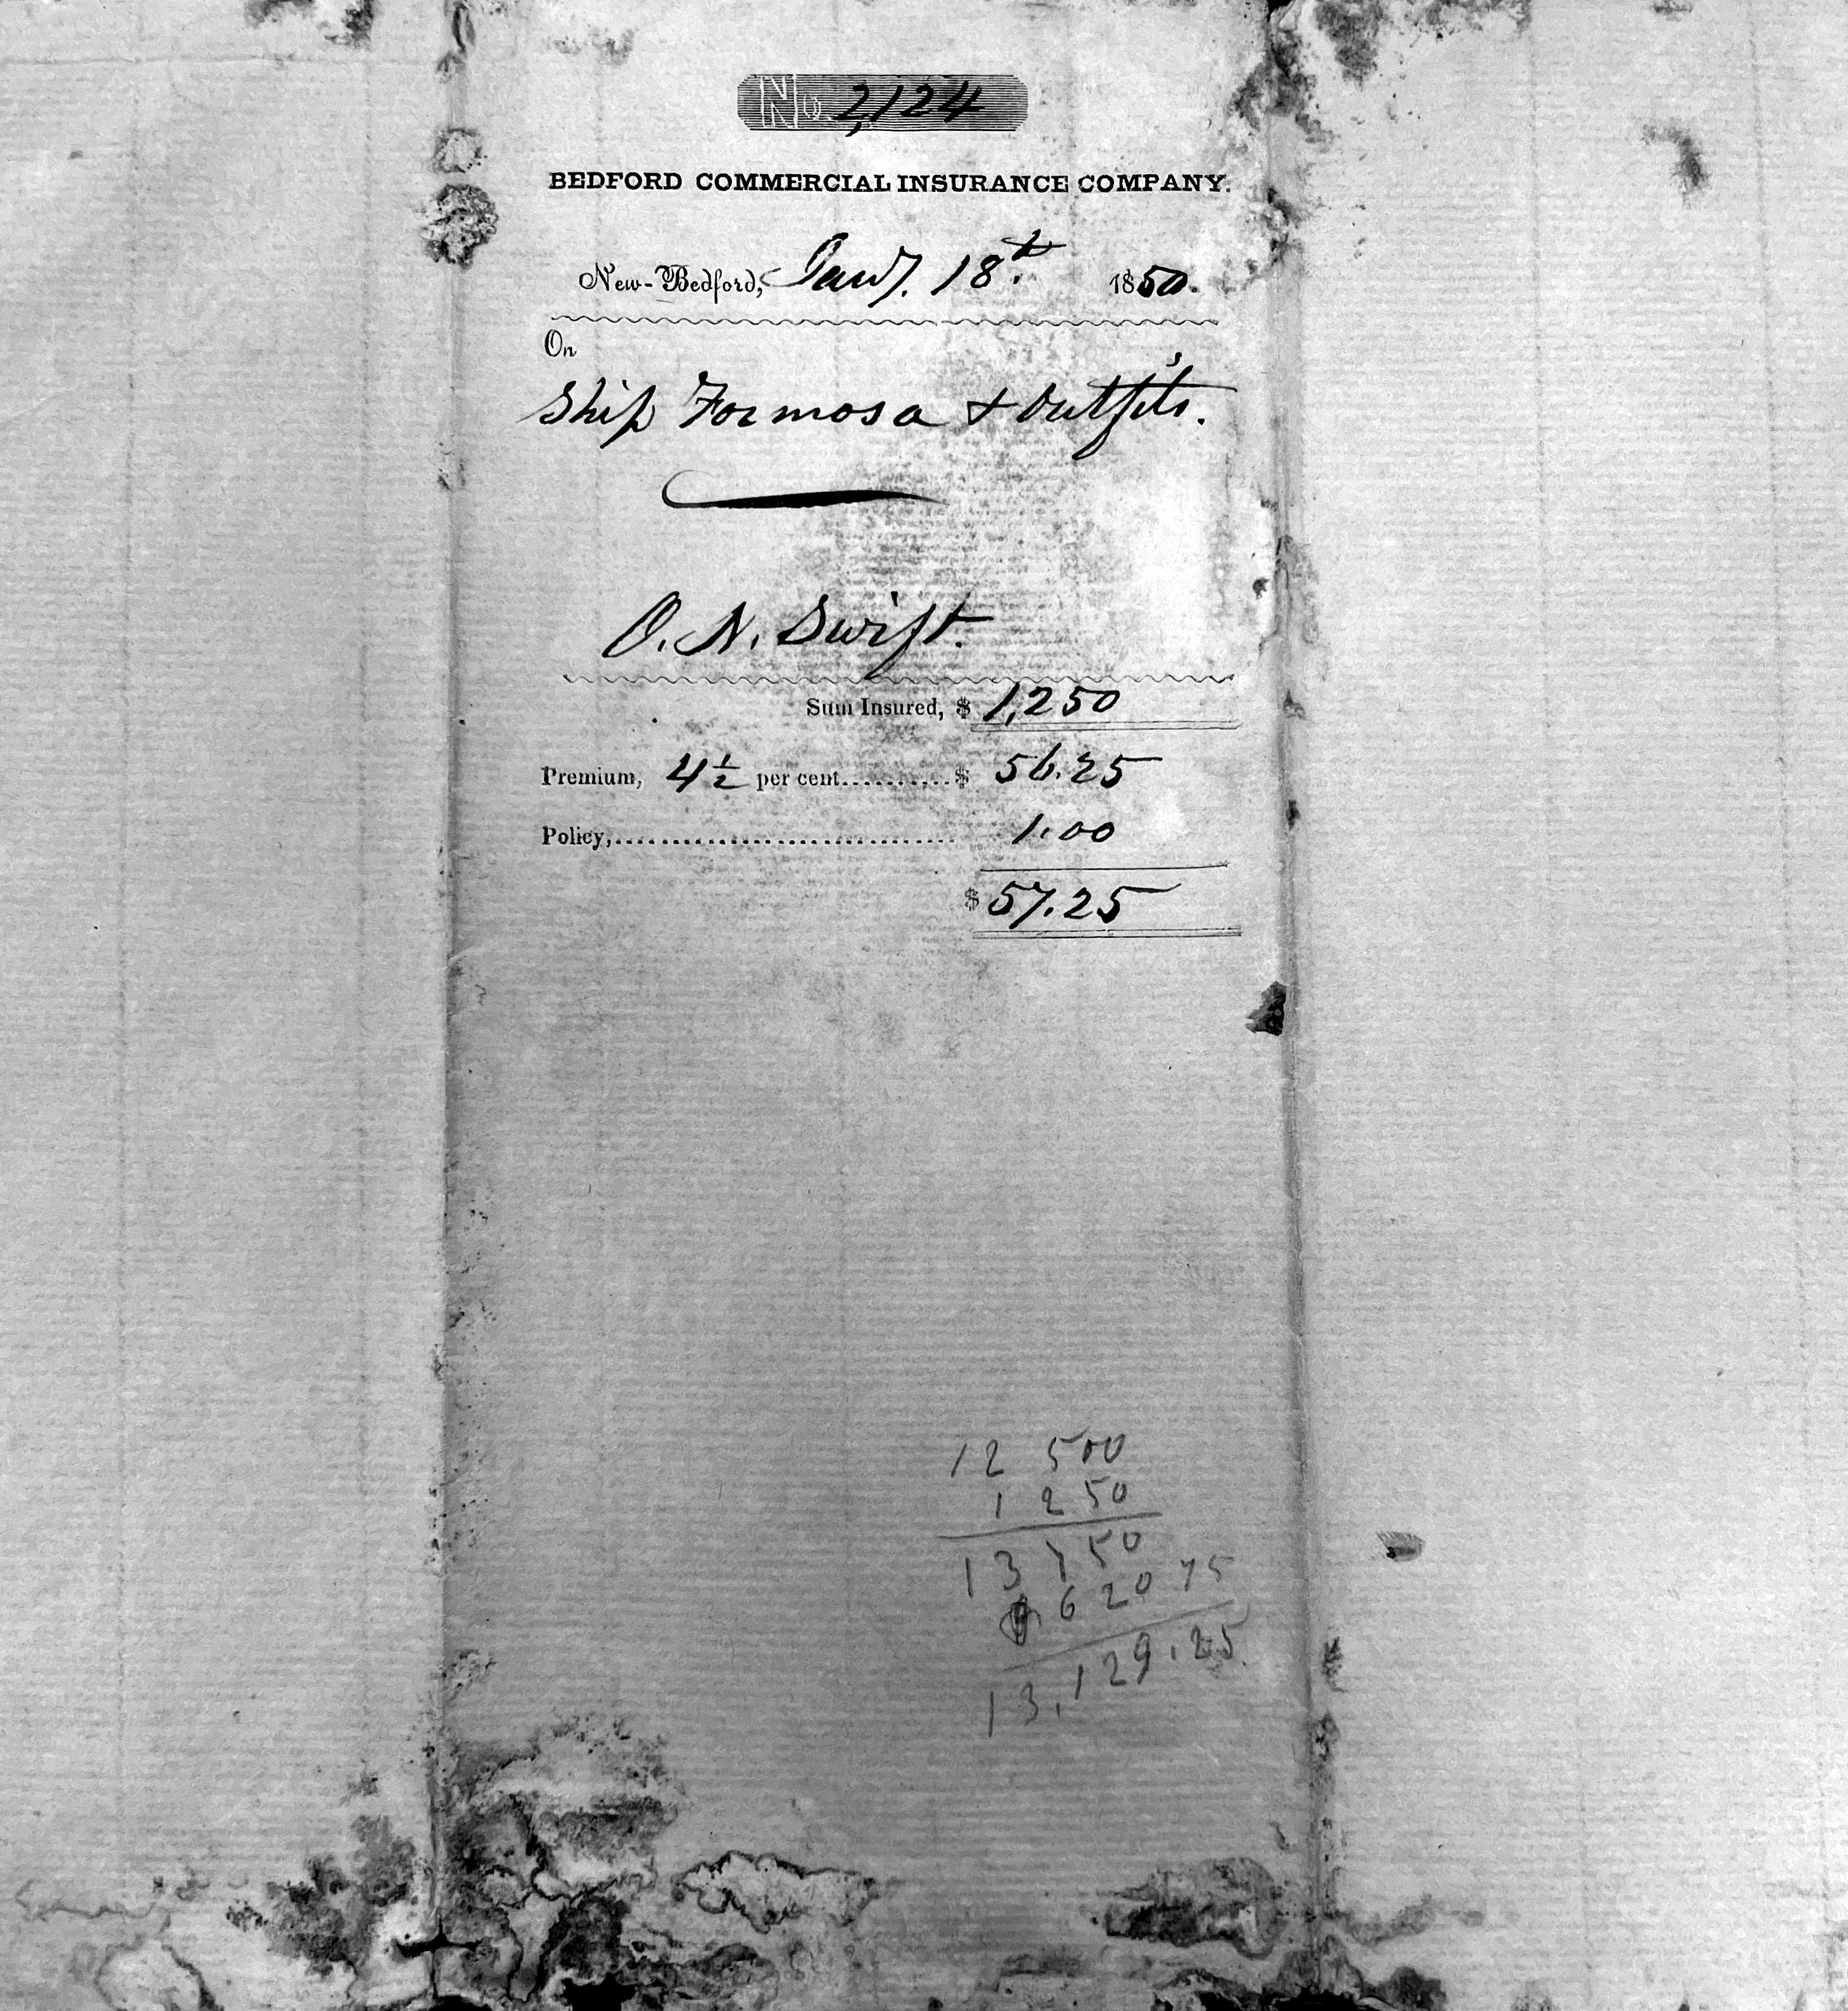 No. 2,124
BEDFORD COMMERCIAL INSURANCE COMPANY.
New-Bedford, Jany. 18t. 1850.
On
Ship Formosa & Outfits.
O. N. Swift.
Sum Insured, $ 1,250
Premium, 4 1/2 per cent..........$ 56.25
Policy,.............................. 1.00
$ 57.25
12 500
1 250
13 750
620 75
13,129.25